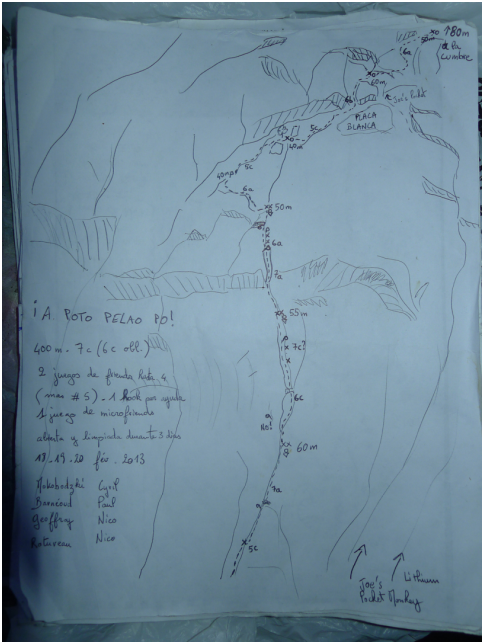 ↑80m
a la
cumbre
50m
6a
60m
6b
Joe's Pocket
PLACA
BLANCA
5c
40m
5c
40m
6a
50m
6a
7a
55m
7c?
6c
Ro!
60m
7a
5c
¡A POTO PELAO PO!
400m. 7c (6c obl.)
2 juegos de friends hasta 4
(mas #5). 1 Hook por ayuda
1 juego de microfriends
abierta y limpiada durante 3 dias
18.19.20 fév. 2013
Cyril
Paul
Geoffroy Nico
Nico
Joe's
Pocket Monkey
Lithium